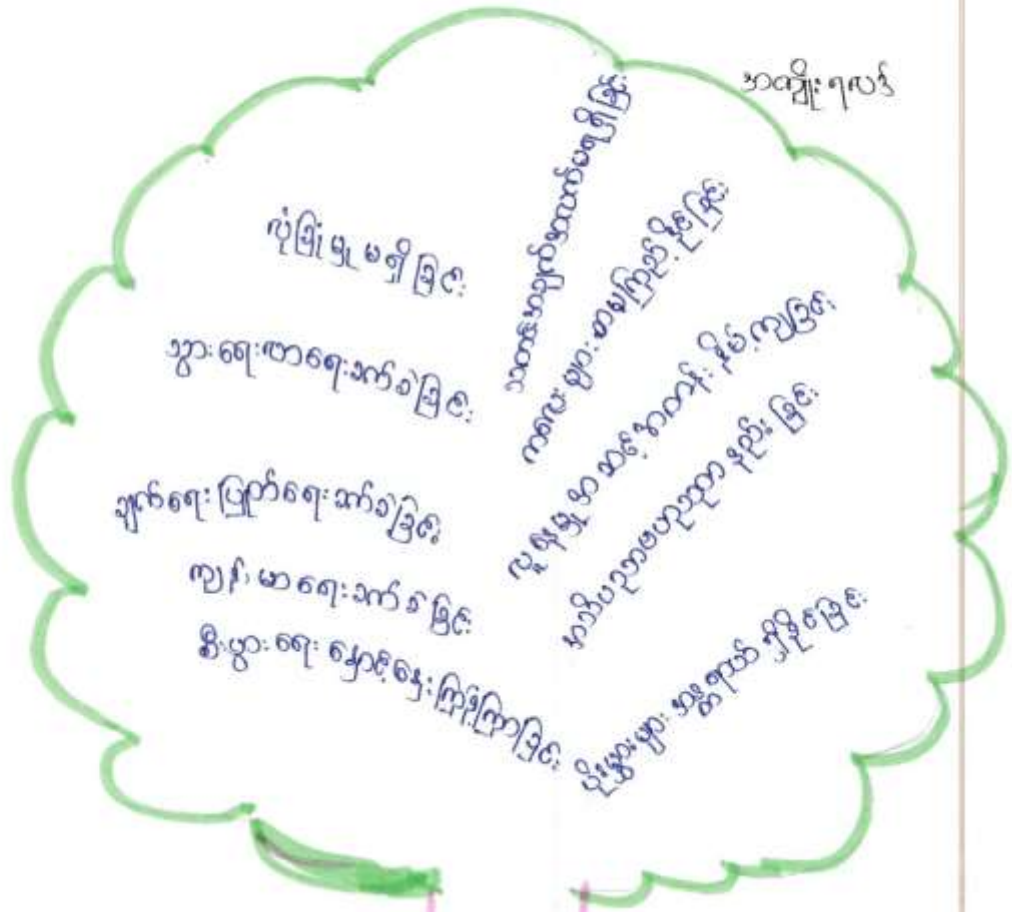 အကျိုးရလဒ်
လုံခြုံမှု မရှိခြင်း
သွားရေးလာရေးခက်ခဲခြင်း
ချက်ရေးပြုတ်ရေးခက်ခဲခြင်း
ကျန်းမာရေးခက်ခဲခြင်း
စီးပွားရေး နှောင့်နှေးကြန့်ကြာခြင်း
သတင်းအချက်အလက်မရရှိခြင်း
ကလေးများ စာမကြည့်နိုင်ခြင်း
လူနေမှုအဆင့်အတန်း နိမ့်ကျခြင်း
အသိပညာဗဟုသုတ နည်းခြင်း
ပိုးမွှားများ အန္တရာယ် ရှိနိုင်ခြင်း